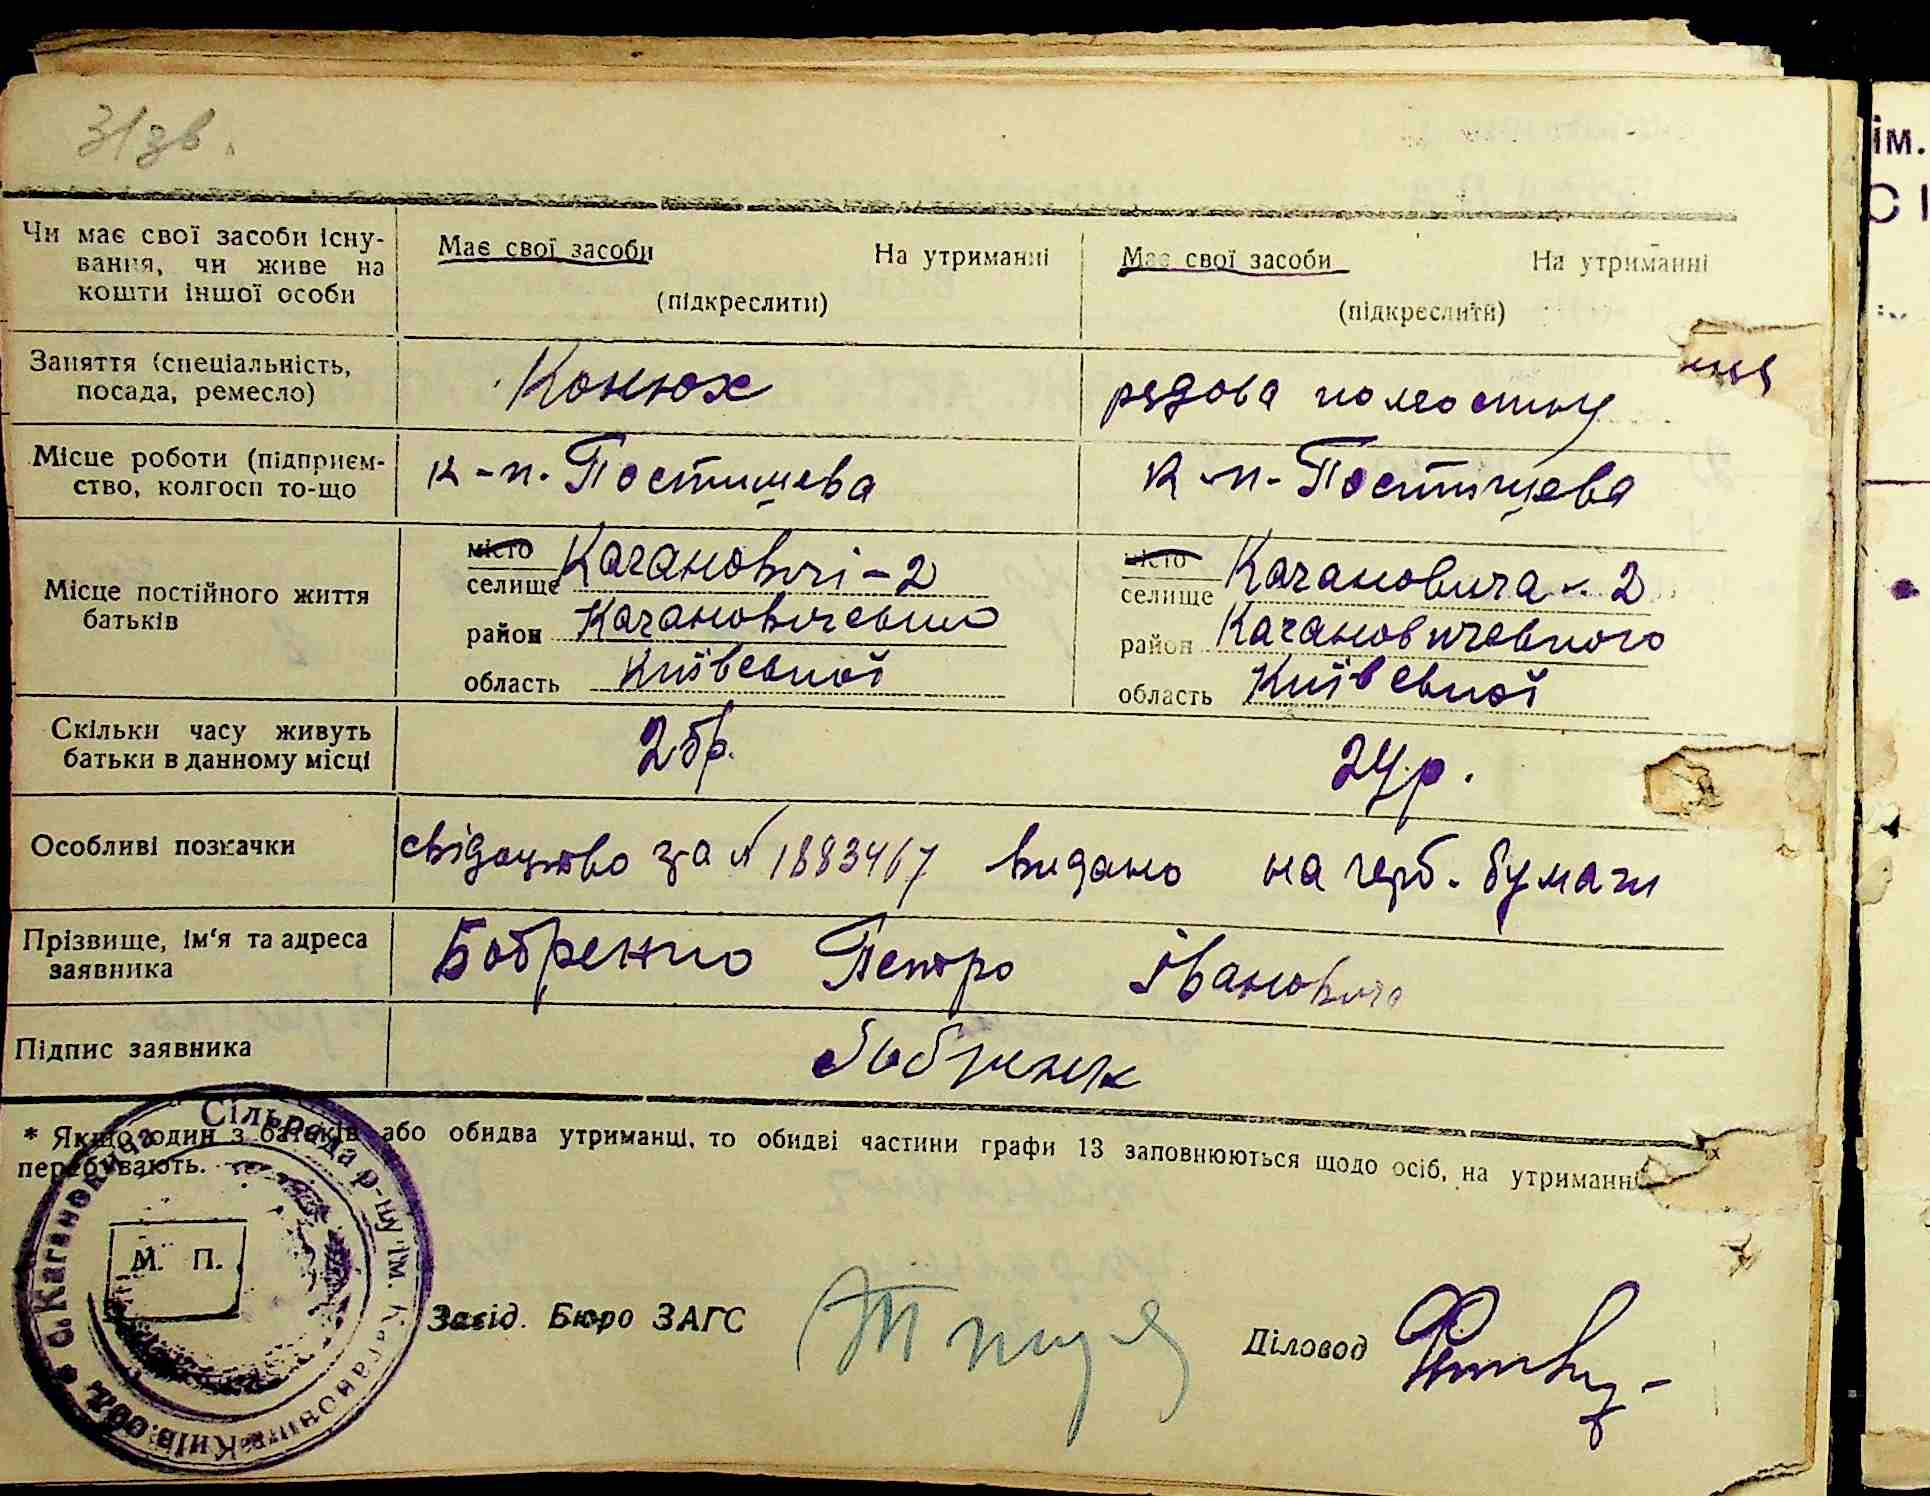 31 зв.
Чи має свої засоби існу-
вання, чи живе на
кошти іншої особи
Має свої засоби На утриманні
(підкреслити)
Має свої засоби На утриманні
(підкреслити)
Заняття (спеціальність,
посада, ремесло)
Конюх
рядова
Місце роботи (підприєм-
ство, колгосп то-що
к-п. Постишева
к-п. Постишева
Місце постійного життя
батьків
місто
селище Кагановичі - 2
район
область Київської
місто
селище Кагановича - 2
район Кагановичевського
область Київської
Скільки часу живуть
батьки в данному місці
26р.
24р.
Особливі позначки
свідоцтво за № 1883467 видано на герб. бумаги
Прізвище, ім'я та адреса
заявника
Бобренко Петро Іванович
Підпис заявника
* Якщо один з батьків або обидва утриманці, то обидві частини графи 13 заповнюються щодо осіб, на утриманні
перебувають.
с. Кагановича Сільрада р-ну ім. Кагановича Київ. обл.
М. П.
Завід. Бюро ЗАГС
Діловод
ім.
СІ